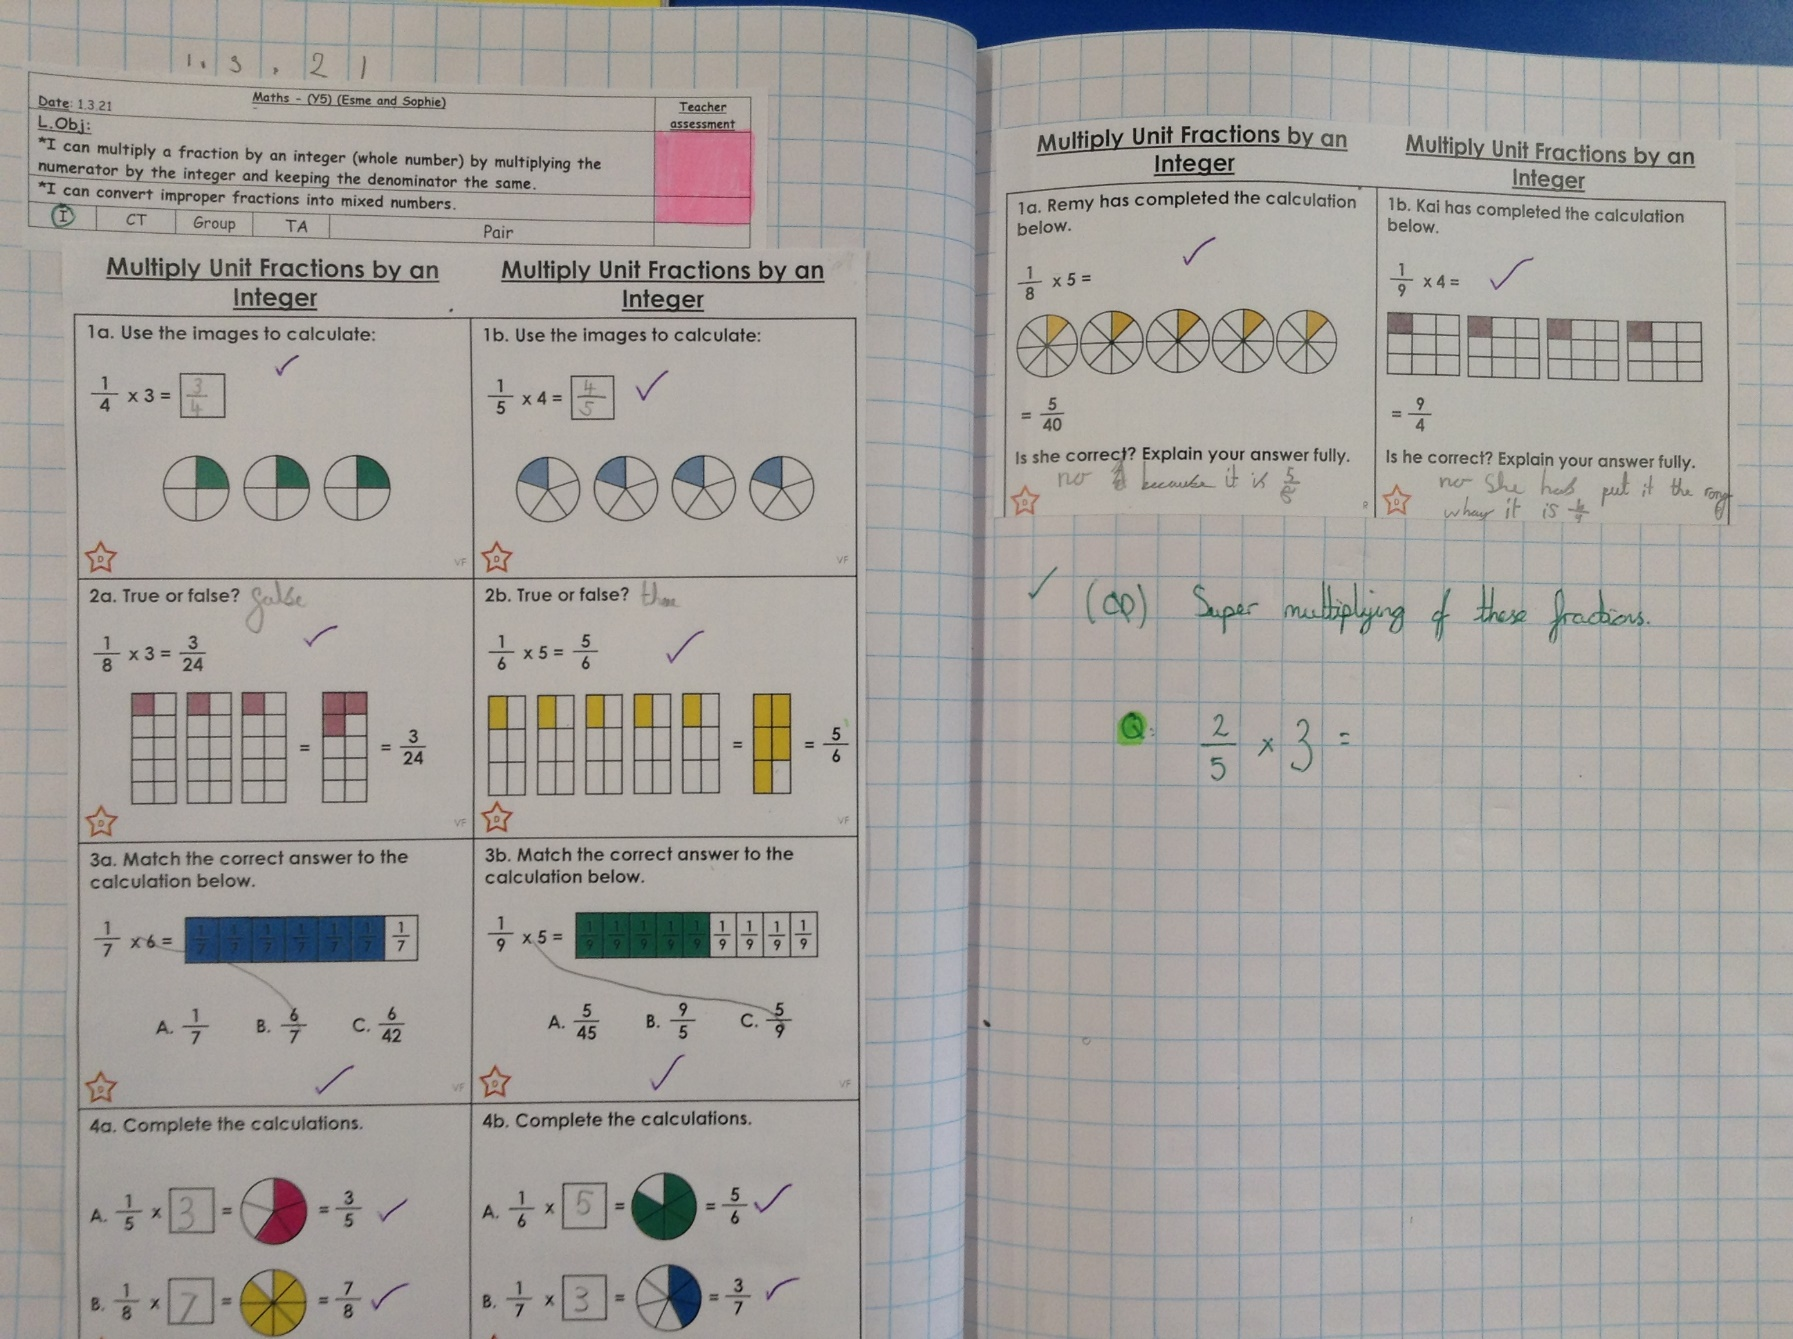 1.3.21
Date: 1.3.21
Maths - (Y5) (Esme and Sophie)
Teacher assessment
L.Obj:
*I can multiply a fraction by an integer (whole number) by multiplying the
numerator by the integer and keeping the denominator the same.
*I can convert improper fractions into mixed numbers.
I CT Group TA Pair
Multiply Unit Fractions by an
Integer
1a. Use the images to calculate:
1/4 x 3 = 3/4
VF
2a. True or false? false
1/8 x 3 = 3/24
= = 3/24
VF
3a. Match the correct answer to the
calculation below.
1/7 x 6 = 1/7 1/7 1/7 1/7 1/7 1/7 1/7
A. 1/7 B. 6/7 C. 6/42
VF
4a. Complete the calculations.
A. 1/5 x 3 = = 3/5
B. 1/8 x 7 = = 7/8
Multiply Unit Fractions by an
Integer
1b. Use the images to calculate:
1/5 x 4 = 4/5
VF
2b. True or false?
1/6 x 5 = 5/6
= = 5/6
VF
3b. Match the correct answer to the
calculation below.
1/9 x 5 = 1/9 1/9 1/9 1/9 1/9 1/9 1/9 1/9 1/9
A. 5/45 B. 9/5 C. 5/9
VF
4b. Complete the calculations.
A. 1/6 x 5 = = 5/6
B. 1/7 x 3 = = 3/7
Multiply Unit Fractions by an
Integer
1a. Remy has completed the calculation
below.
1/8 x 5 =
= 5/40
Is she correct? Explain your answer fully.
no because it is
R
Multiply Unit Fractions by an
Integer
1b. Kai has completed the calculation
below.
1/9 x 4 =
= 9/4
Is he correct? Explain your answer fully.
no she has put it the rong
whay it is 4/9
Super multiplying of these fractions.
Q: 2/5 x 3 =